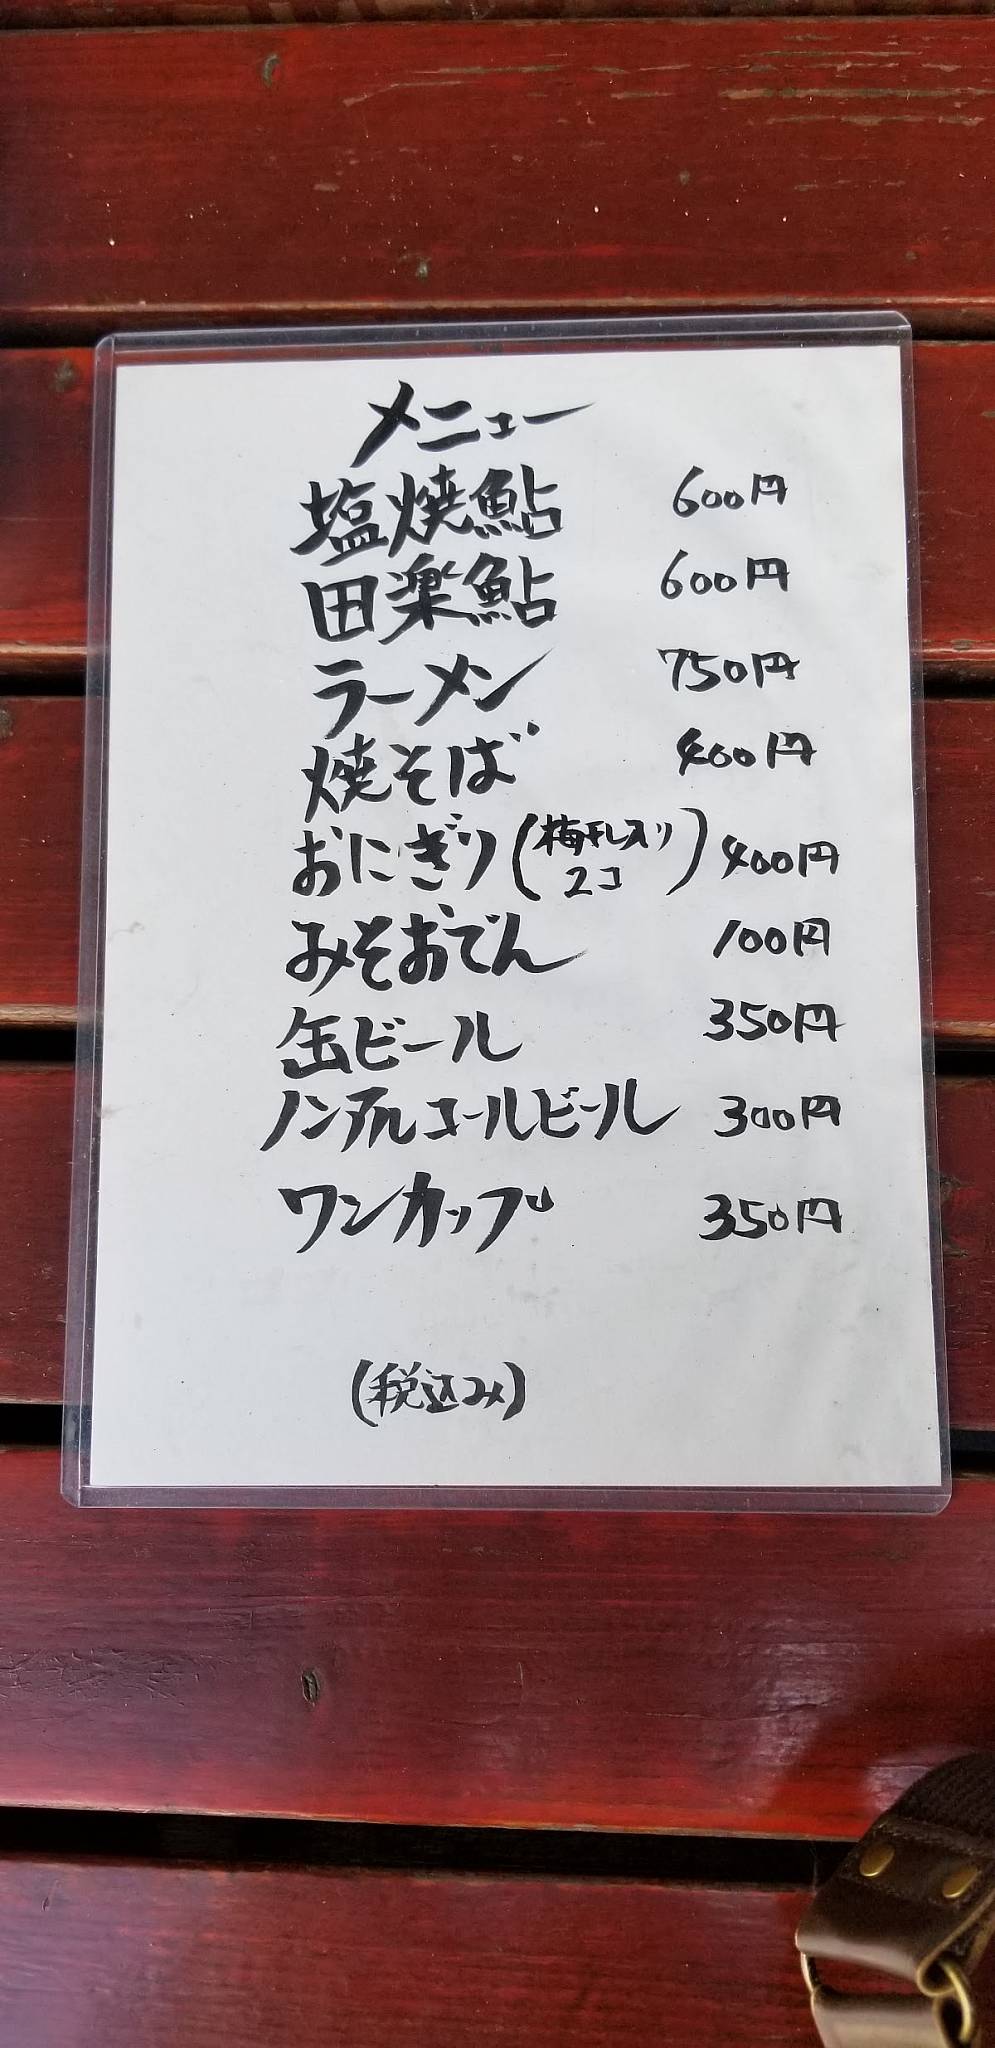 メニュー
塩焼鮎 600円
田楽鮎 600円
ラーメン 750円
焼そば 400円
おにぎり(梅干し入り 2コ) 400円
みそおでん 100円
缶ビール 350円
ノンアルコールビール 300円
ワンカップ 350円
(税込み)